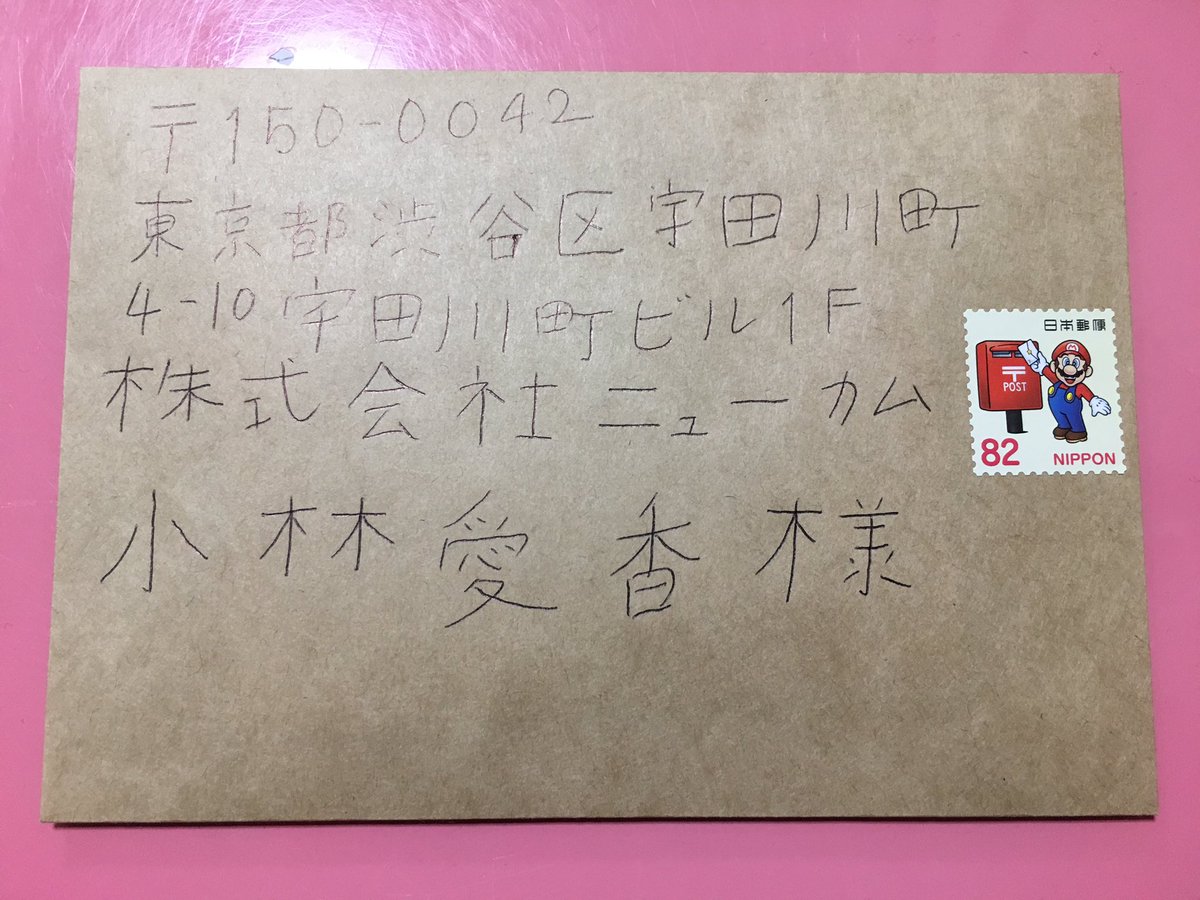 〒150-0042
東京都渋谷区宇田川町
4-10宇田川町ビル1F
株式会社ニューカム
小林愛香様
日本郵便
〒
POST
M
82 NIPPON